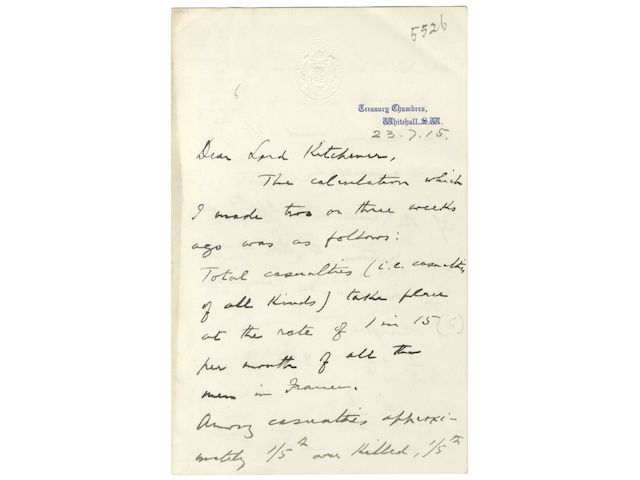 5526
6
Treasury Chambers,
Whitehall. S.W.
23.7.15.
Dear Lord Kitchener,
The calculation which
I made two or three weeks
ago was as follows:
Total casualties (i.e. casualties
of all kinds) take place
at the rate of 1 in 15 (6)
per month of all the
men in France.
Among casualties approxi-
mately 1/5th are killed, 1/5th